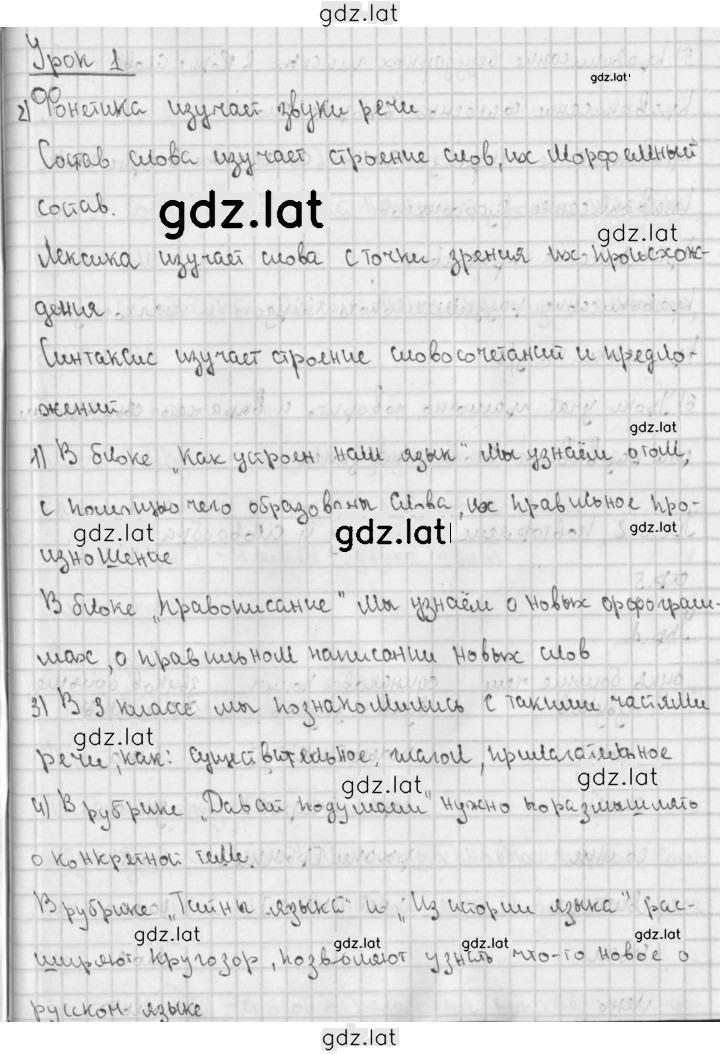 gdz.lat
Урок 1
gdz.lat
2) Фонетика изучает звуки речи
Состав слова изучает строение слов, их морфемный
состав.
gdz.lat
gdz.lat
Лексика изучает слова с точки зрения их происхож-
дения
Синтаксис изучает строение словосочетаний и предло-
жений
gdz.lat
1) В блоке "Как устроен наш язык" мы узнаём о том,
с помощью чего образованы слова, их правильное про-
gdz.lat
gdz.lat
gdz.lat
изношение
В блоке "Правописание" мы узнаём о новых орфограм-
мах, о правильном написании новых слов
3) В 3 классе мы познакомились с такими частями
gdz.lat
речи, как: существительное, глагол, прилагательное
gdz.lat
gdz.lat
4) В рубрике "Давай подумаем" нужно поразмышлять
о конкретной теме.
В рубрике "Тайны языка" и "Из истории языка" рас-
gdz.lat
gdz.lat
gdz.lat
gdz.lat
ширяют кругозор, позволяют узнать что-то новое о
русском языке
gdz.lat